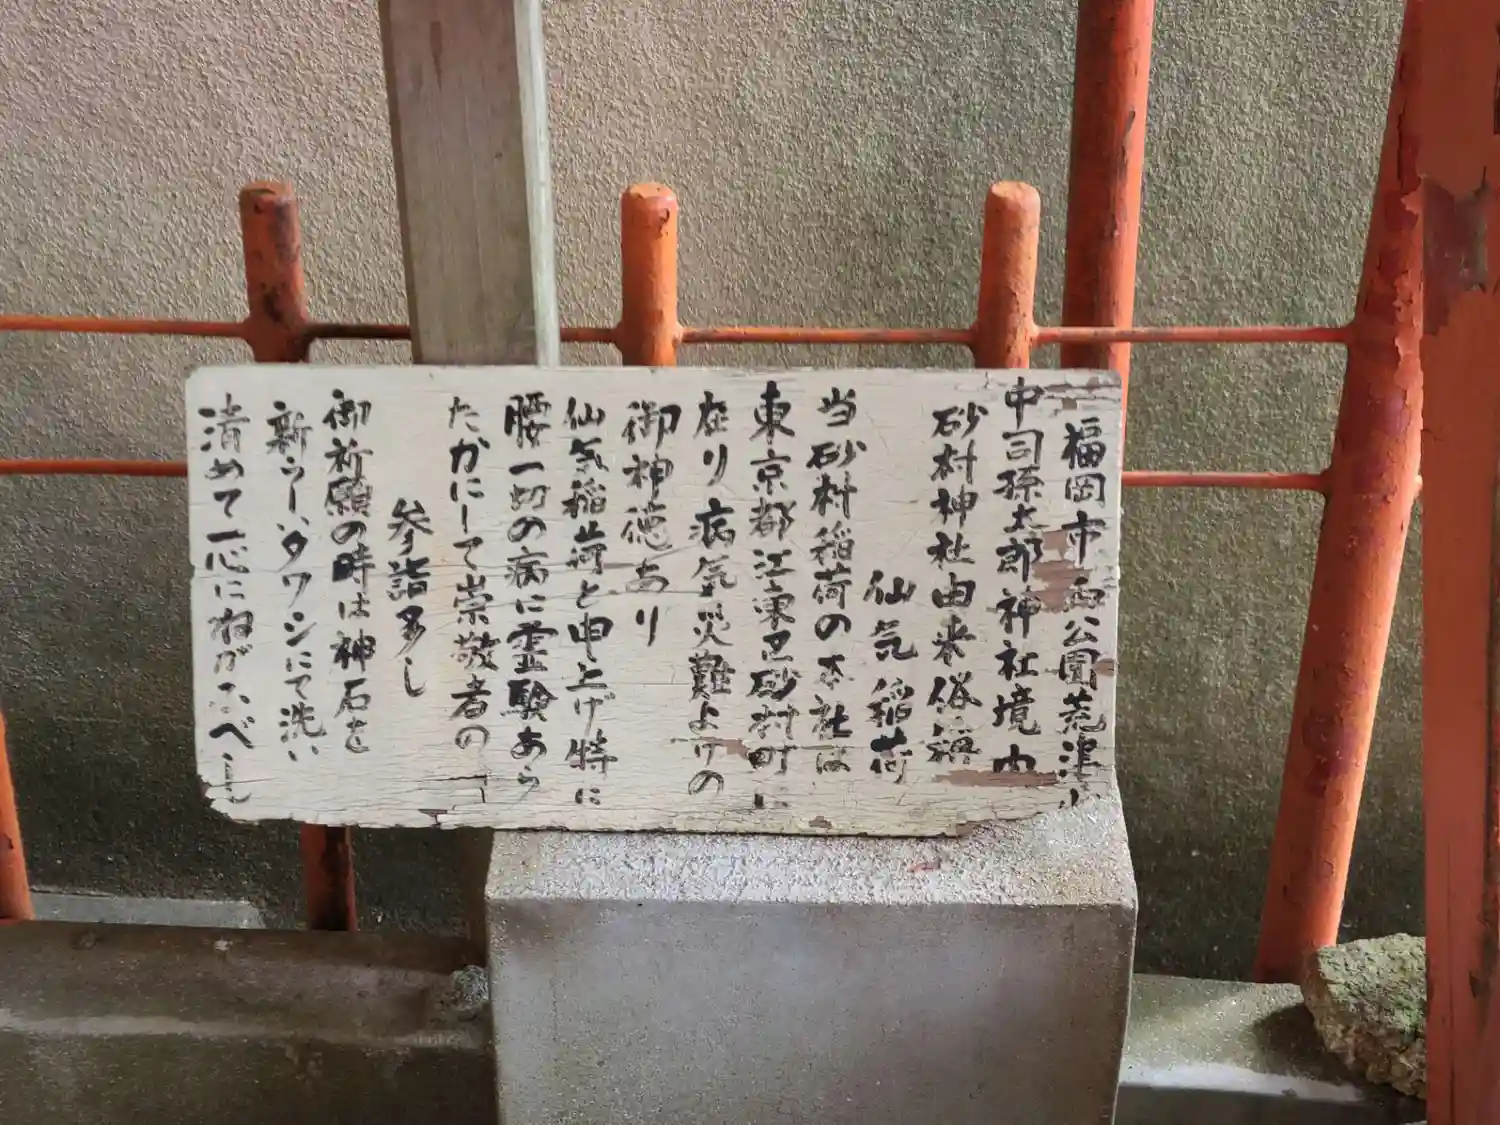 福岡市西公園荒津山
中司孫太郎神社境内
砂村神社由来俗称
仙気稲荷
当砂村稲荷の本社は
東京都江東区砂村町に
在り病気災難よけの
御神徳あり
仙気稲荷と申上げ特に
腰一切の病に霊験あら
たかにして崇敬者の
参詣多し
御祈願の時は神石を
新らしいタワシにて洗い
清めて一心にねがふべし